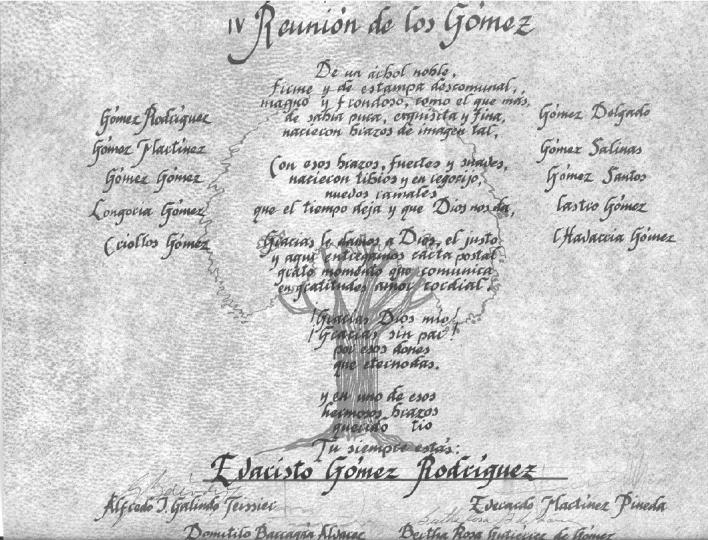 IV Reunión de los Gómez
De un árbol noble,
firme y de estampa descomunal,
magno y frondoso, como el que más,
de sabia pura, exquisita y fina,
nacieron brazos de imagen tal,
Con esos brazos, fuertes y suaves,
nacieron tibios y en regocijo,
nuevos ramales
que el tiempo deja y que Dios nos da,
Gracias le damos a Dios, el justo
y aquí entregamos carta postal
grato momento que comunica
en gratitudes amor cordial,
¡Gracias Dios mío!
¡Gracias sin par!
por esos dones
que eternodas.
y en uno de esos
hermosos brazos
querido tío
Tú siempre estás:
Gómez Rodríguez
Gómez Martínez
Gómez Gómez
Longoria Gómez
Criollos Gómez
Gómez Delgado
Gómez Salinas
Gómez Santos
Lastro Gómez
Chavarria Gómez
Evaristo Gómez Rodríguez
Alfredo J. Galindo Teissier
Everardo Martínez Pineda
Domitilo Barragán Alvarez
Bertha Rosa Gutierrez de Gómez